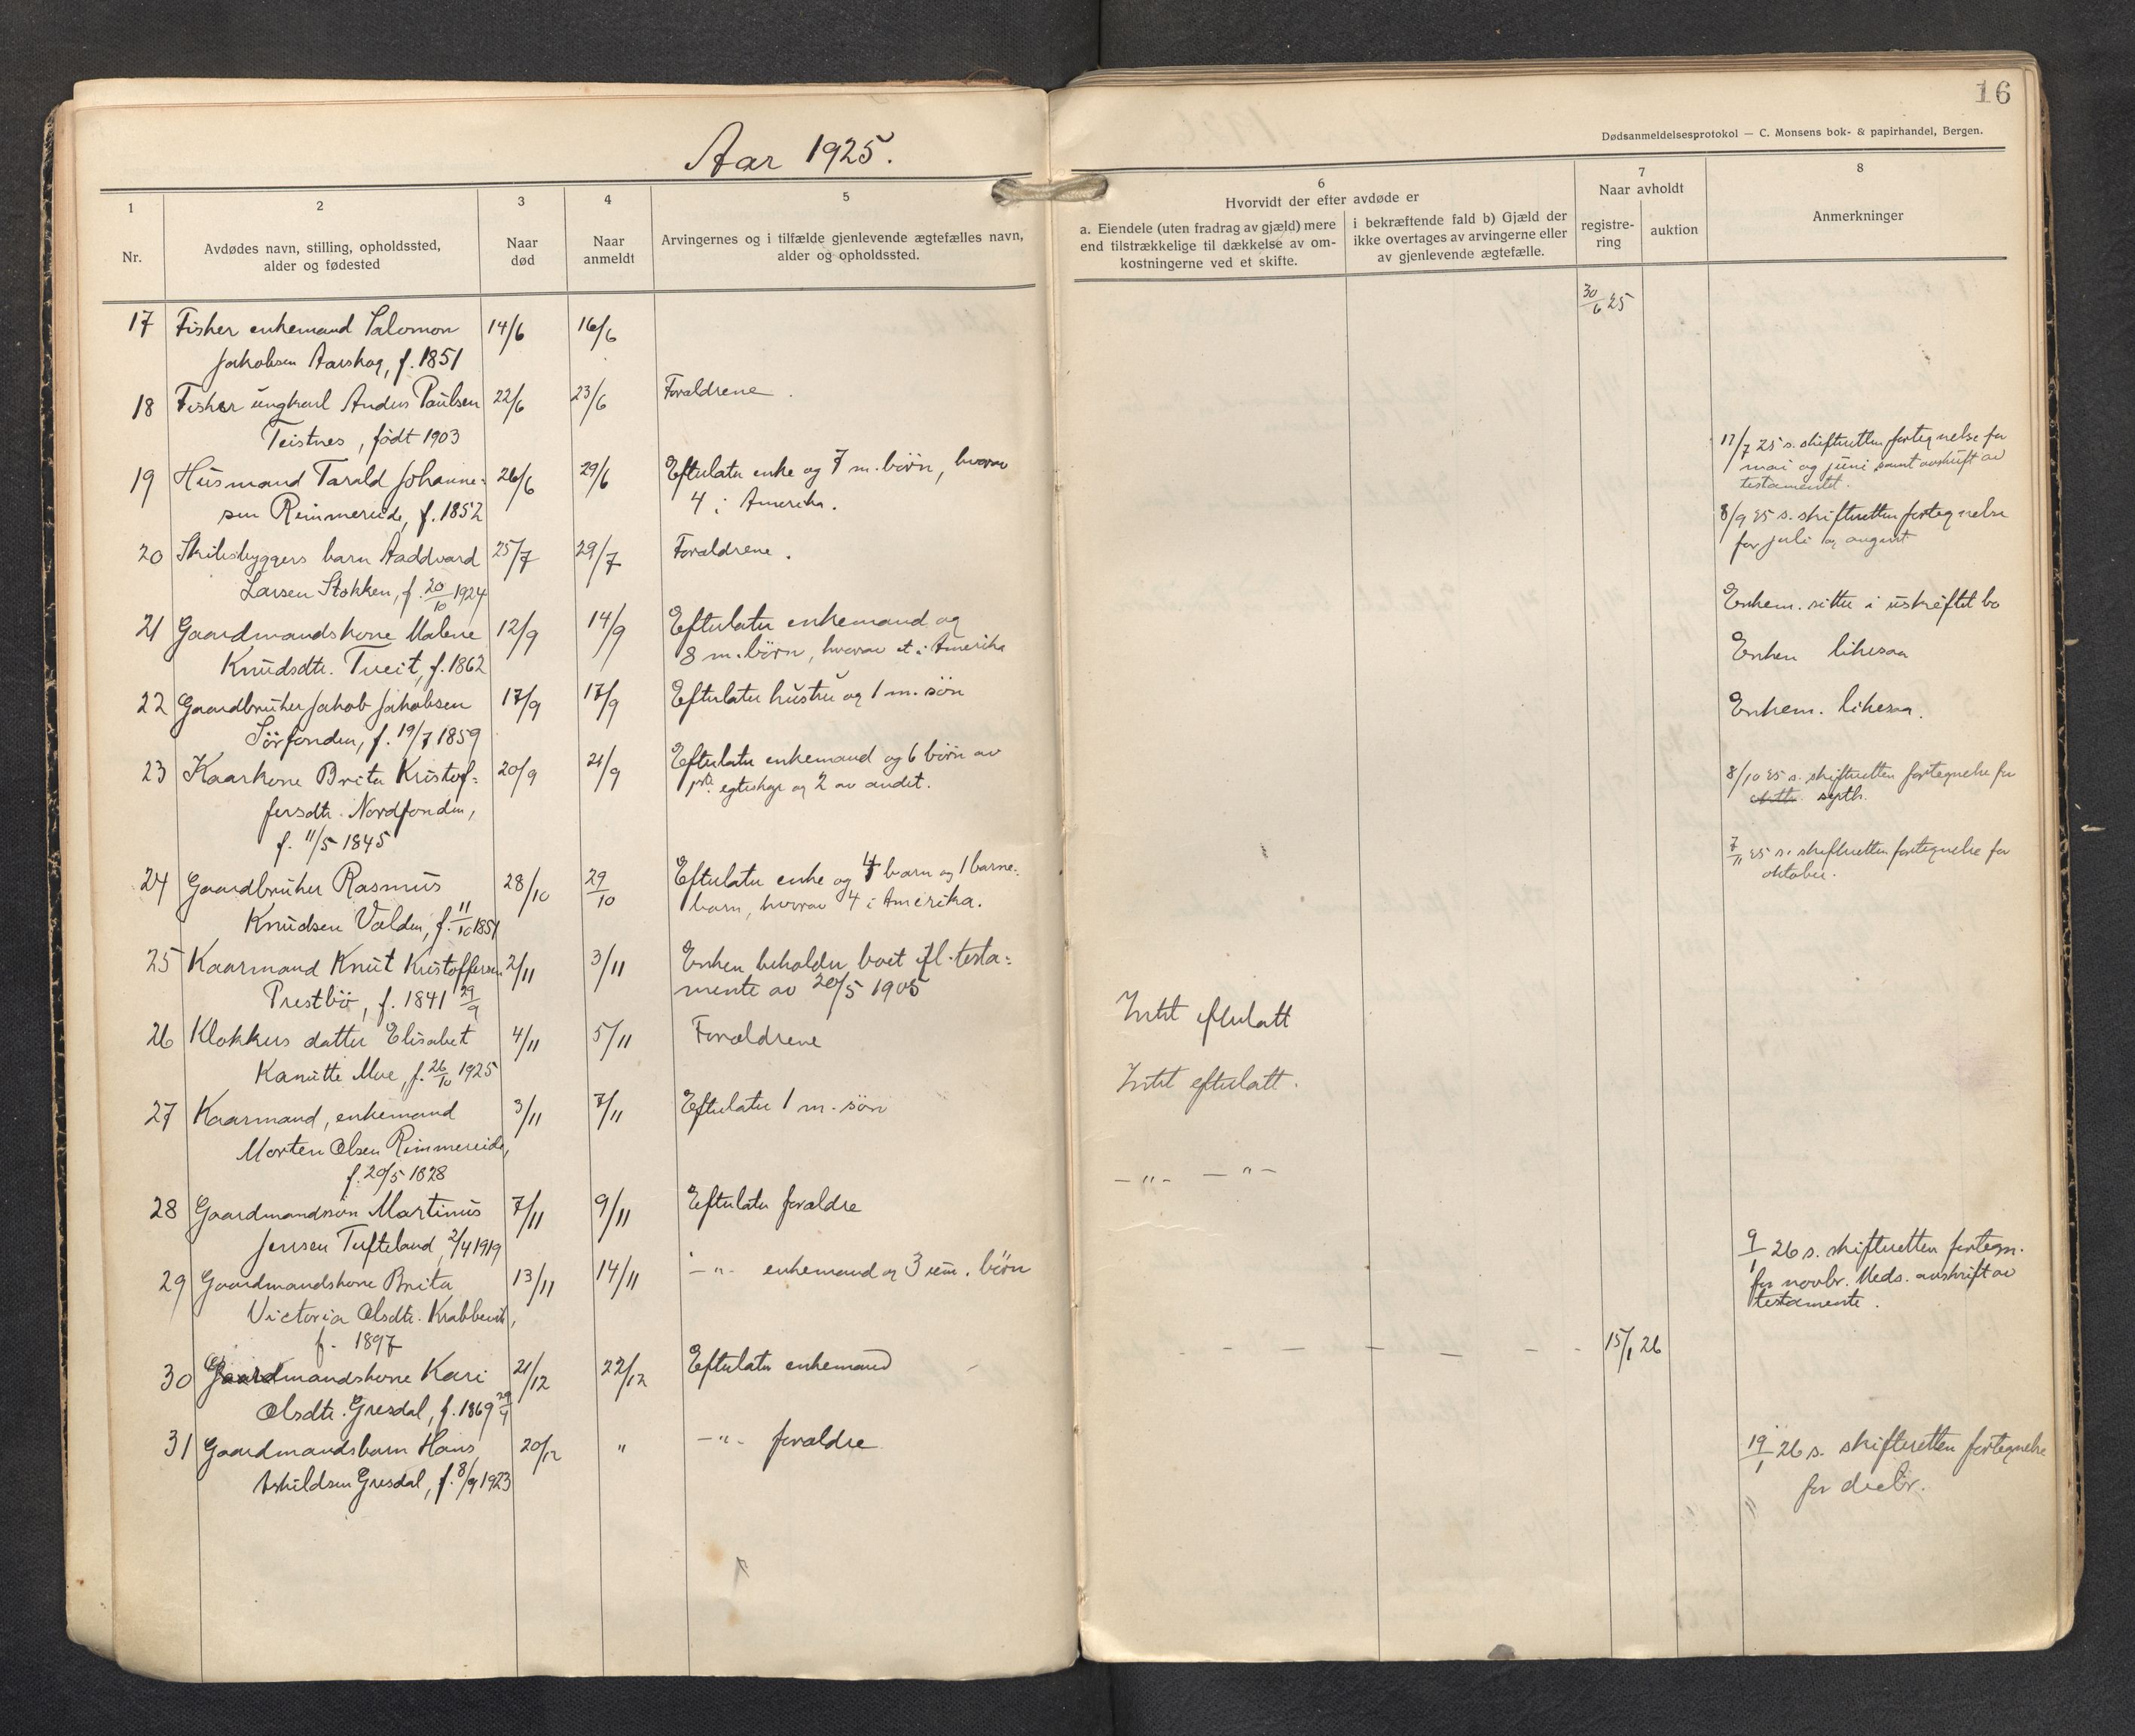 Aar 1925.
1
Nr.
2
Avdødes navn, stilling, opholdssted,
alder og fødested
3
Naar
død
4
Naar
anmeldt
5
Arvingernes og i tilfælde gjenlevende ægtefælles navn,
alder og opholdssted.
17 Fisker enkemand Salomon 14/6 16/6
Jakobsen Aarskog, f. 1851
18 Fisker ungkarl Anders Paulsen 22/6 23/6 Forældrene.
Teistnes, født 1903
19 Husmand Tarald Johanne= 26/6 29/6 Efterlater enke og 7 m. börn, hvorav
sen Rimmereide, f. 1852 4 i Amerika.
20 Skibsbyggers barn Aadvard 25/7 29/7 Forældrene.
Larsen Stokken, f. 20/10 1924
21 Gaardmandskone Malene 12/9 14/9 Efterlater enkemand og
Knudsdtr. Tveit, f. 1862 8 m. börn, hvorav et i Amerika
22 Gaardbruker Jakob Jakobsen 17/9 17/9 Efterlater hustru og 1 m. sön
Sörfonden, f. 19/7 1859
23 Kaarkone Brita Kristof= 20/9 21/9 Efterlater enkemand og 6 börn av
fersdtr. Nordfonden, 1ste egteskap og 2 av andet.
f. 11/5 1845
24 Gaardbruker Rasmus 28/10 29/10 Efterlater enke og 4 barn og 1 barne=
Knudsen Valden, f. 11/10 1851 barn, hvorav 4 i Amerika.
25 Kaarmand Knut Kristoffersen 2/11 3/11 Enken beholder boet ifl. testa=
Prestbö, f. 1841 29/9 mente av 20/5 1905
26 Klokkers datter Elisabet 4/11 5/11 Forældrene
Kanutte Moe, f. 26/10 1925
27 Kaarmand, enkemand 3/11 7/11 Efterlater 1 m. sön
Morten Olsen Rimmereide,
f. 20/5 1828
28 Gaardmandssön Martinus 7/11 9/11 Efterlater forældre
Jensen Tufteland, 2/4 1919
29 Gaardmandskone Brita 13/11 14/11 -"- enkemand og 3 um. börn
Victoria Olsdtr. Krabbevik,
f. 1897
30 Gaardmandskone Kari 21/12 22/12 Efterlater enkemand
Olsdtr. Gresdal, f. 1869
31 Gaardmandsbarn Hans 20/12 " -"- forældre
Askildsen Gresdal, f. 8/9 1923
16
Dødsanmeldelsesprotokol — C. Monsens bok- & papirhandel, Bergen.
6
Hvorvidt der efter avdøde er
a. Eiendele (uten fradrag av gjæld) mere
end tilstrækkelige til dækkelse av om-
kostningerne ved et skifte.
i bekræftende fald b) Gjæld der
ikke overtages av arvingerne eller
av gjenlevende ægtefælle.
7
Naar avholdt
registre-
ring
auktion
8
Anmerkninger
30/6 25
17/7 25 s. skifteretten fortegnelse for
mai og juni samt avskrift av
testamentet.
8/9 25 s. skifteretten fortegnelse
for juli og august
Enkem. sitter i uskiftet bo
Enken likesaa
Enkem. likesaa.
8/10 25 s. skifteretten fortegnelse for
septb.
7/11 25 s. skifteretten fortegnelse for
oktober.
Intet efterlatt
Intet efterlatt.
-"- -"-
9/1 26 s. skifteretten fortegn.
for novbr. Meds. avskrift av
testamente.
15/1 26
19/1 26 s. skifteretten fortegnelse
for decbr.